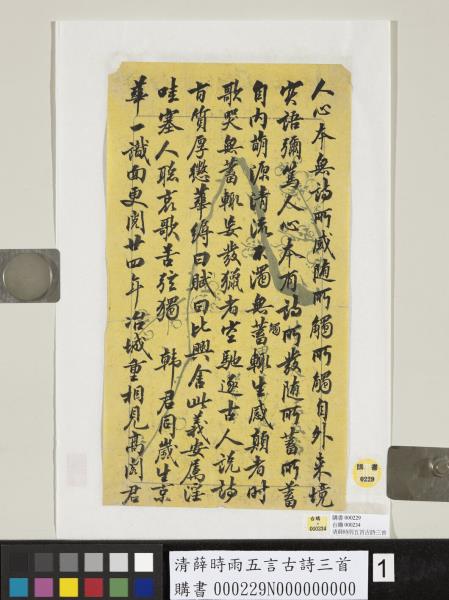 人心本無詩所感随所觸所觸自外来境
實語彌篤人心本有詩所發随所蓄所蓄
自内萌源清流不濁無蓄輙生感顛者时
觸
歌哭無蓄輙妄發獵者空馳逐古人說詩
旨質厚懲華縟曰賦曰比興舍此義安屬淫
哇塞人聡哀歌苦弦獨 韓君同歲生京
華一識面更閱廿四年冶城重相見高閣君
購書
0229
000234
購書 000229
台購 000234
清薛時雨五言古詩三首
清薛時雨五言古詩三首
購書 000229N000000000
1